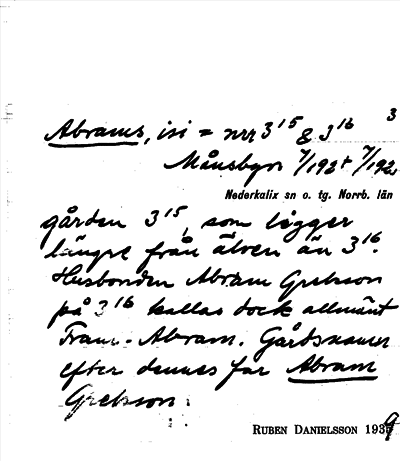 3
Abrams, isi = nrr 3¹⁵ & 3¹⁶
Månsbyn 7/192 + 7/192.
Nederkalix sn o. tg. Norrb. län
gården 3¹⁵, som ligger
längre från älven än 3¹⁶.
Husbonden Abram Grelsson
på 3¹⁶ kallas dock allmänt
Fram-Abram. Gårdsnamn
efter dennes far Abram
Grelsson.
RUBEN DANIELSSON 1939